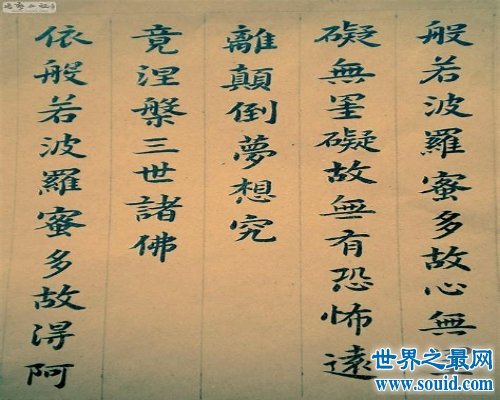 般若波羅蜜多故心無罣
礙無罣礙故無有恐怖遠
離顛倒夢想究
竟涅槃三世諸佛
依般若波羅蜜多故得阿
世界之最网
www.souid.com